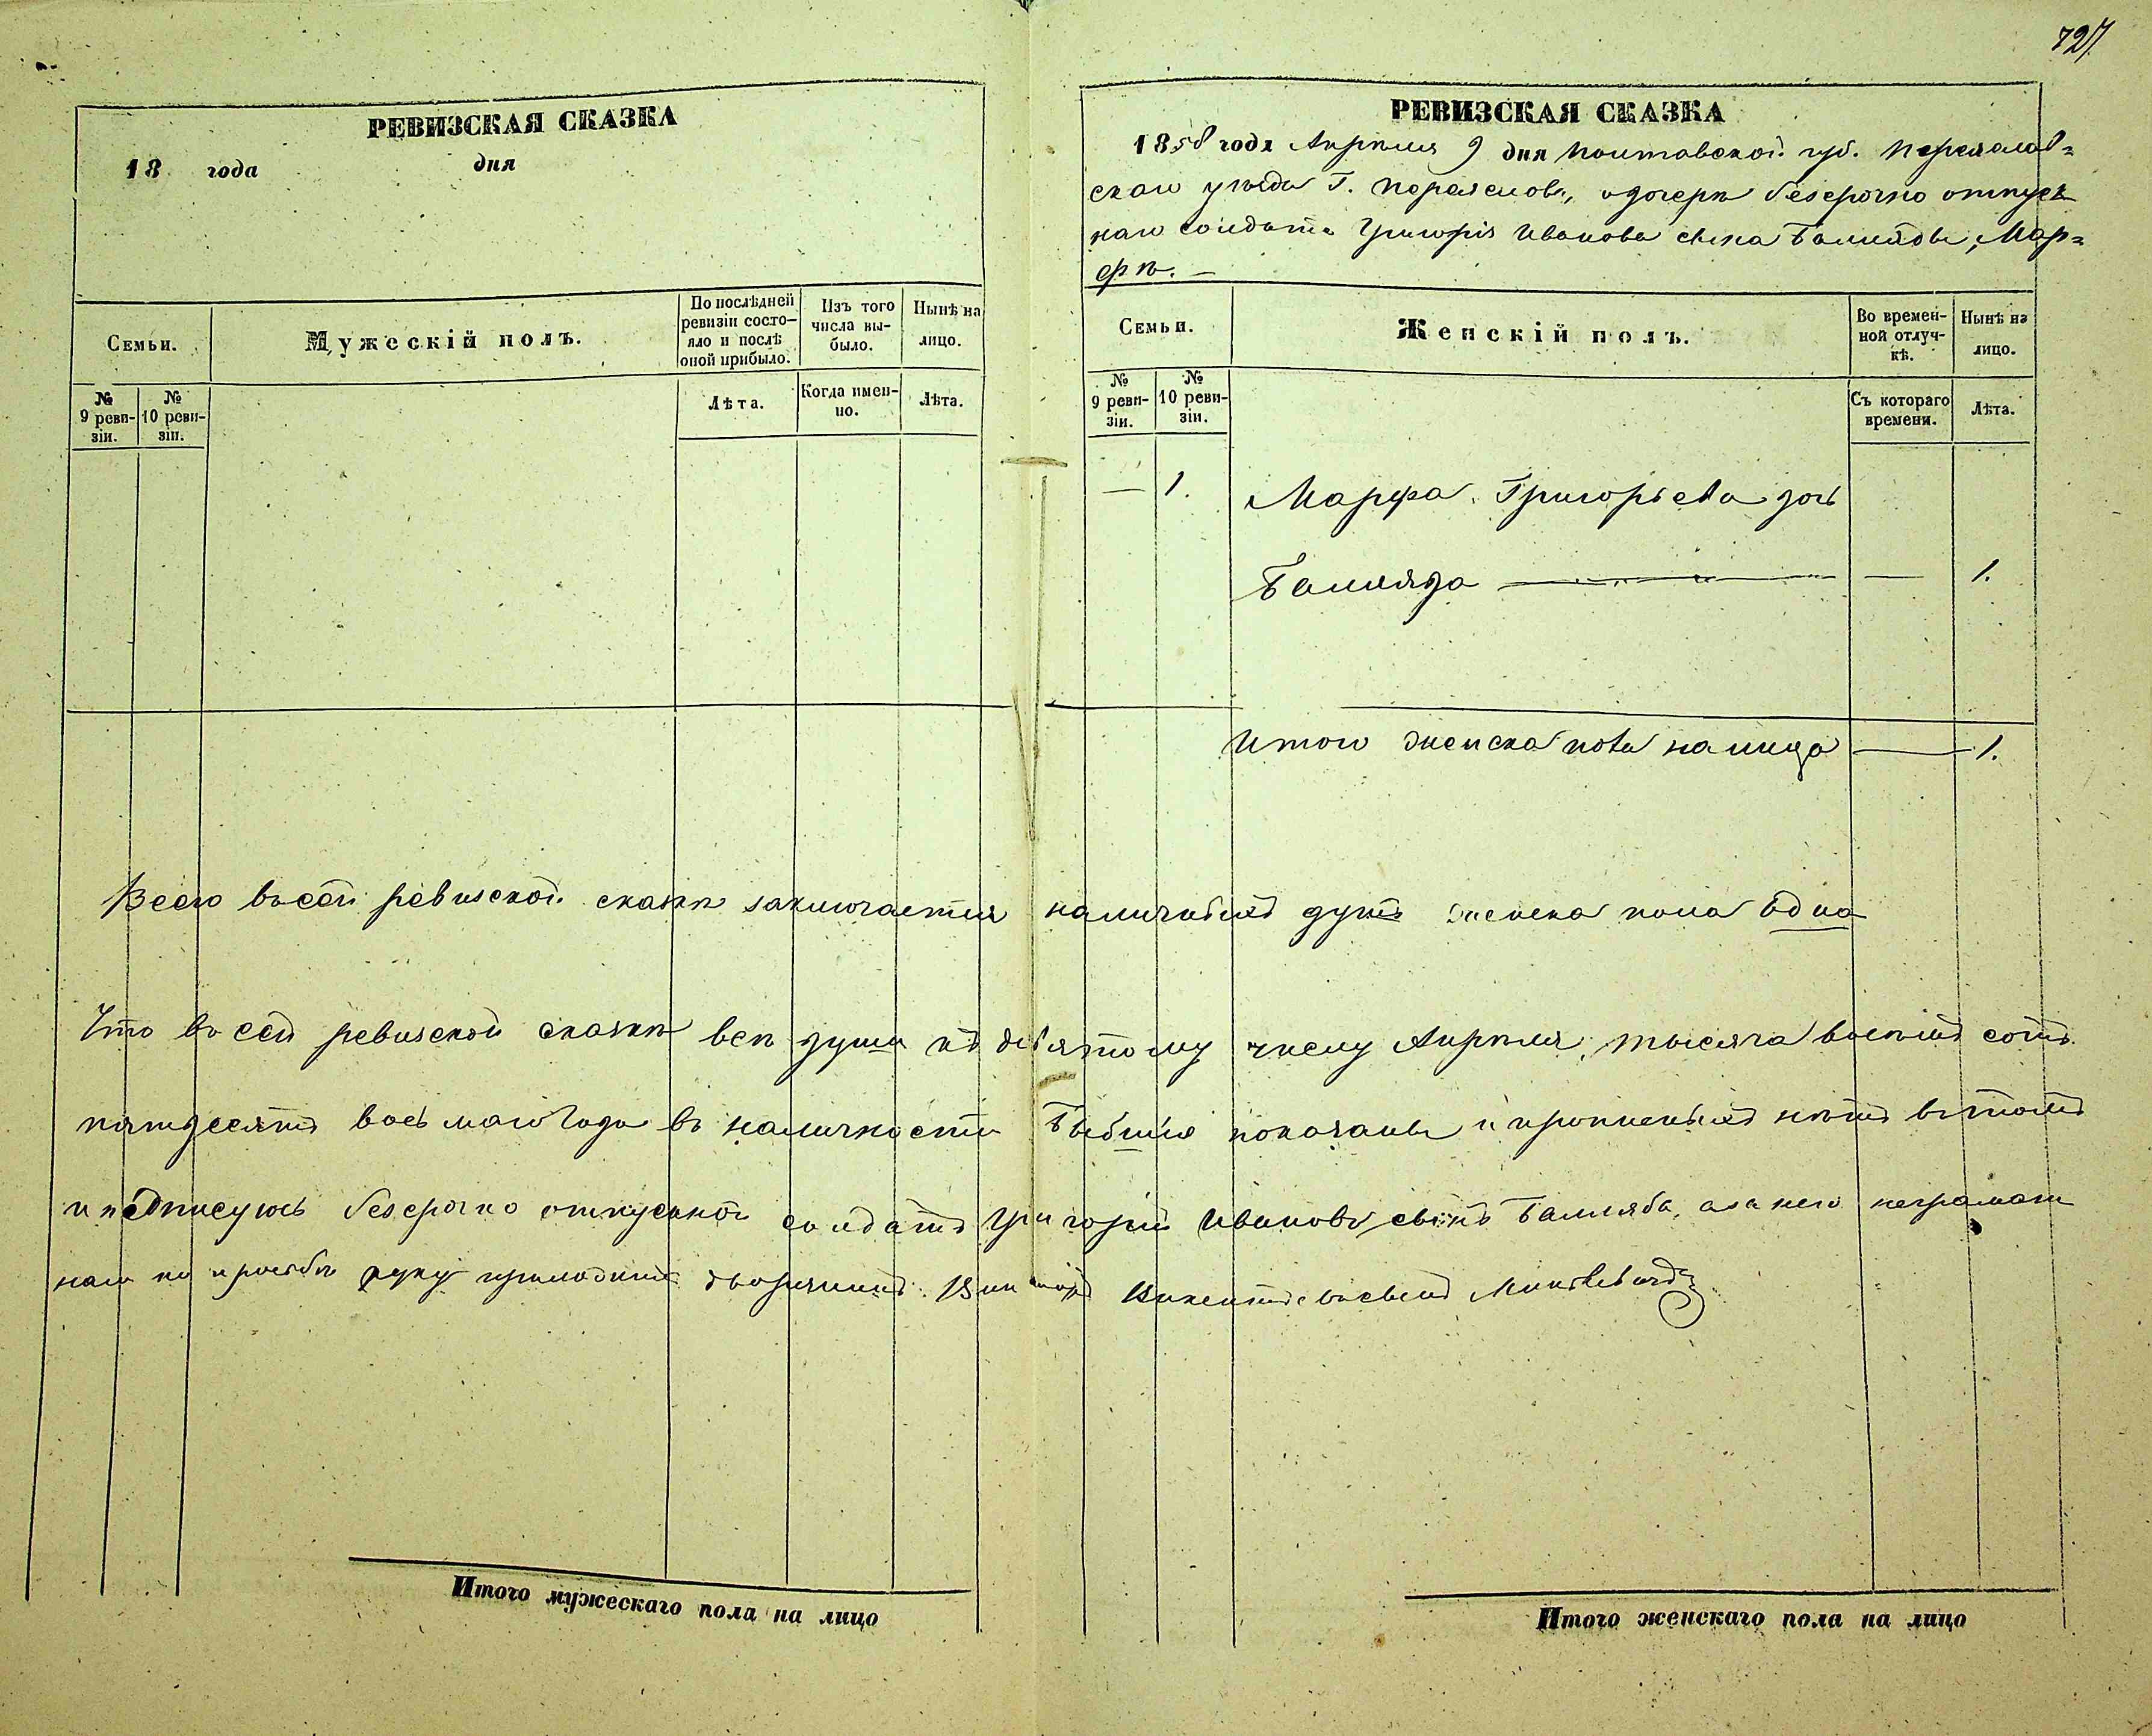 727
РЕВИЗСКАЯ СКАЗКА
18 года дня
Семьи.
Мужескій полъ.
По послѣдней ревизіи состо-
яло и послѣ оной прибыло.
Изъ того числа вы-
было.
Нынѣ на лицо.
№ 9 реви-
зіи.
№ 10 реви-
зіи.
Лѣта.
Когда имен-
но.
Лѣта.
РЕВИЗСКАЯ СКАЗКА
1858 года Апрѣля 9 дня Полтавской губ. Переяслав=
скаго уѣзда Г. Переяслова, о дочерѣ безсрочно отпуск
наго солдата Григорія Иванова сына, Мар=
фѣ. —
Семьи.
Женскій полъ.
Во времен-
ной отлуч-
кѣ.
Нынѣ на лицо.
№ 9 реви-
зіи.
№ 10 реви-
зіи.
Съ котораго времени.
Лѣта.
— 1. Марфа Григорьева дочь
— 1.
Итого женска пола налицо — 1.
Всего въ сей ревизской сказкѣ заключается наличныхъ душъ женска пола одна
Что въ сей ревизской сказкѣ всѣ души къ девятому числу Апрѣля, тысяча восемь сотъ
пятдесятъ восьмаго года въ наличности бывшіе показаны и прописныхъ нѣтъ въ томъ
и подписуюсь безсрочно отпускной солдатъ Григорій Ивановъ сынъ, а за него неграмот
наго по прозьбѣ руку приложилъ дворянинъ Викторъ Викентіевъ сынъ
Итого мужескаго пола на лицо
Итого женскаго пола на лицо